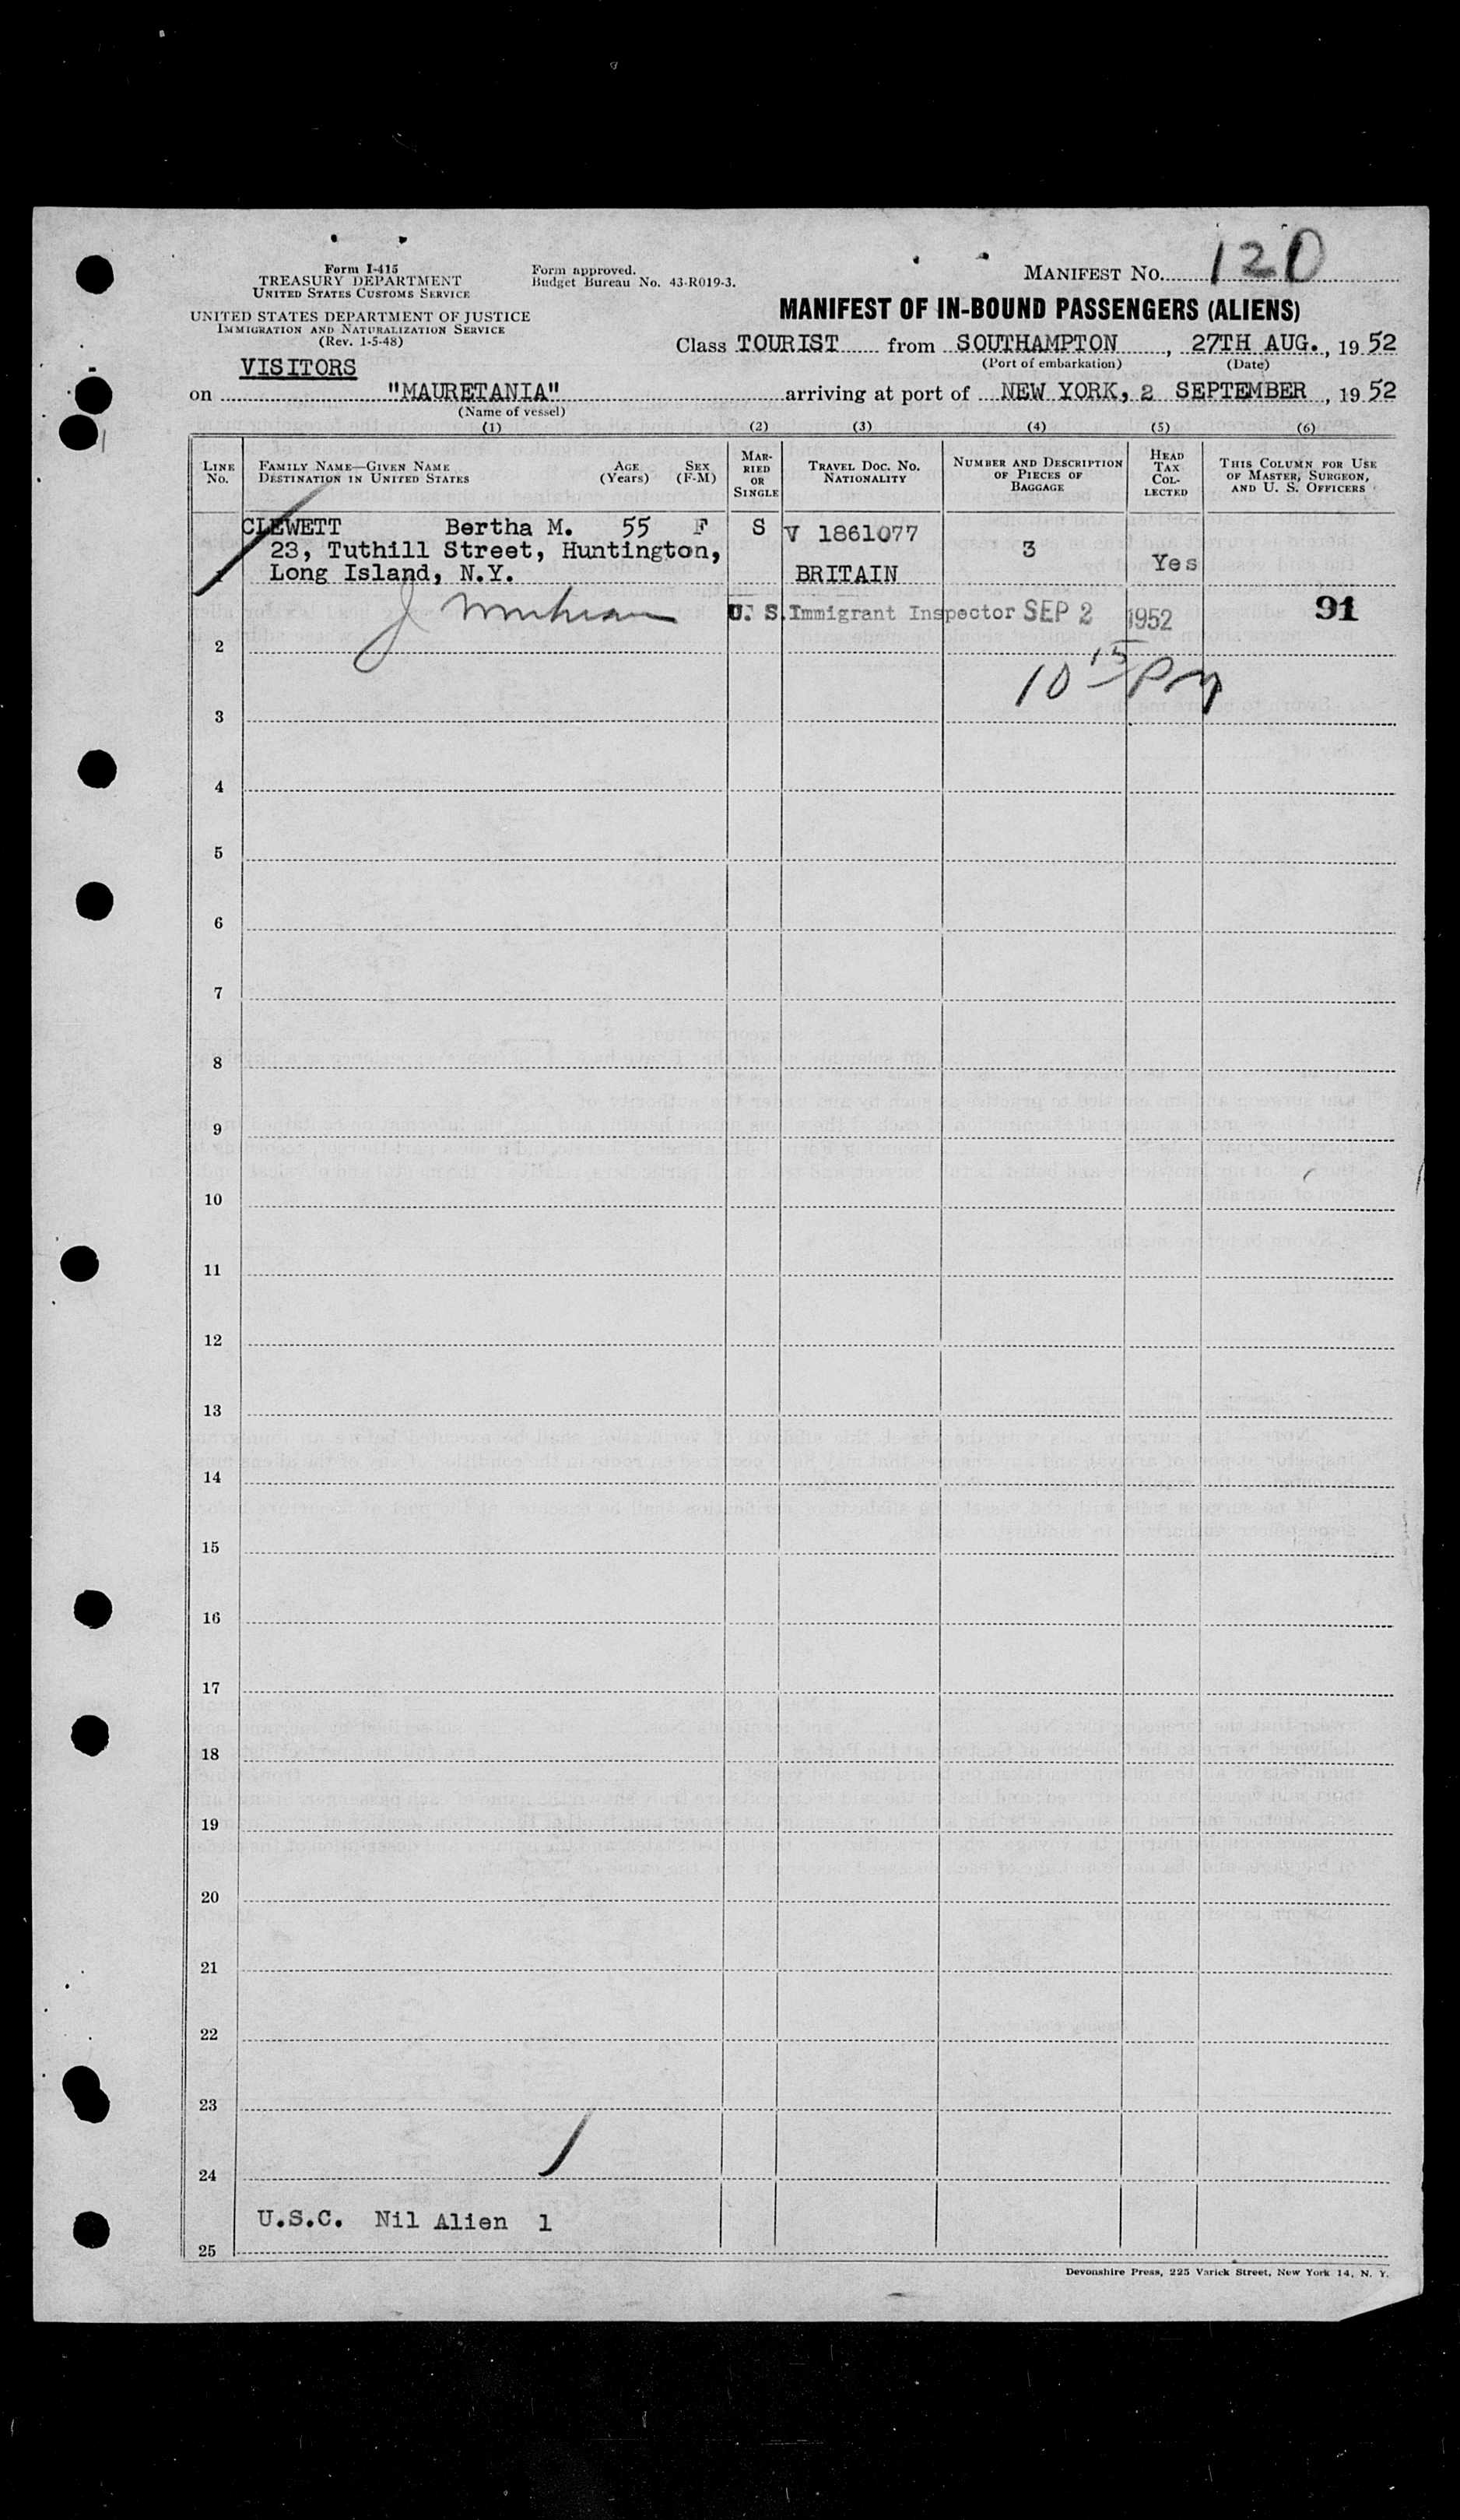 Form I-415
TREASURY DEPARTMENT
UNITED STATES CUSTOMS SERVICE
UNITED STATES DEPARTMENT OF JUSTICE
IMMIGRATION AND NATURALIZATION SERVICE
(Rev. 1-5-48)
Form approved.
Budget Bureau No. 43-R019-3.
MANIFEST NO. 120
MANIFEST OF IN-BOUND PASSENGERS (ALIENS)
Class TOURIST from SOUTHAMPTON, 27TH AUG., 1952
(Port of embarkation) (Date)
VISITORS
on "MAURETANIA" arriving at port of NEW YORK, 2 SEPTEMBER, 1952
(Name of vessel)
(1) (2) (3) (4) (5) (6)
LINE NO.
FAMILY NAME—GIVEN NAME
DESTINATION IN UNITED STATES
AGE (Years)
SEX (F-M)
MARRIED OR SINGLE
TRAVEL DOC. NO.
NATIONALITY
NUMBER AND DESCRIPTION
OF PIECES OF
BAGGAGE
HEAD
TAX
COL-
LECTED
THIS COLUMN FOR USE
OF MASTER, SURGEON,
AND U. S. OFFICERS
CLEWETT Bertha M. 55 F S V 1861077
23, Tuthill Street, Huntington, 3 Yes
Long Island, N.Y. BRITAIN
U. S. Immigrant Inspector SEP 2 1952 91
2
10 15 PM
3
4
5
6
7
8
9
10
11
12
13
14
15
16
17
18
19
20
21
22
23
24
U.S.C. Nil Alien 1
25
Devonshire Press, 225 Varick Street, New York 14, N. Y.